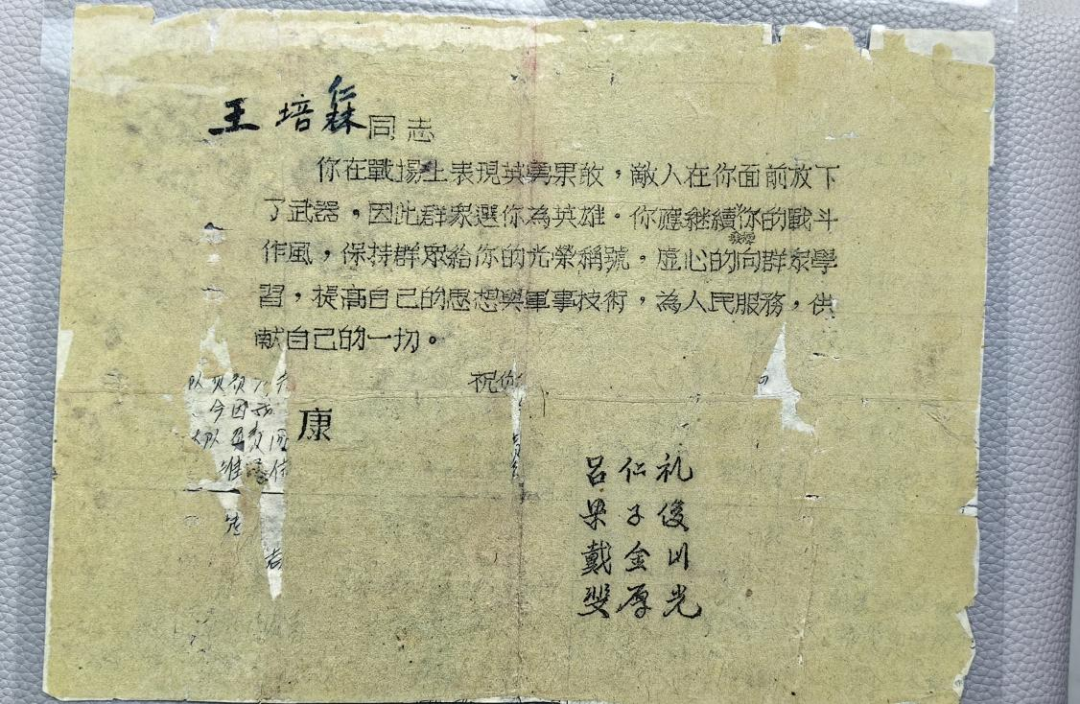 王培𬃊同志
你在戰場上表現英勇果敢，敵人在你面前放下
了武器，因此群眾選你為英雄。你應継續發揮你的戰斗
作風，保持群眾給你的光榮稱號。虛心的向群眾學
習，提高自己的思想與軍事技術，為人民服務，供
献自己的一切。
祝你
康
今因
呂仁礼
梁子俊
戴金川
斐厚光